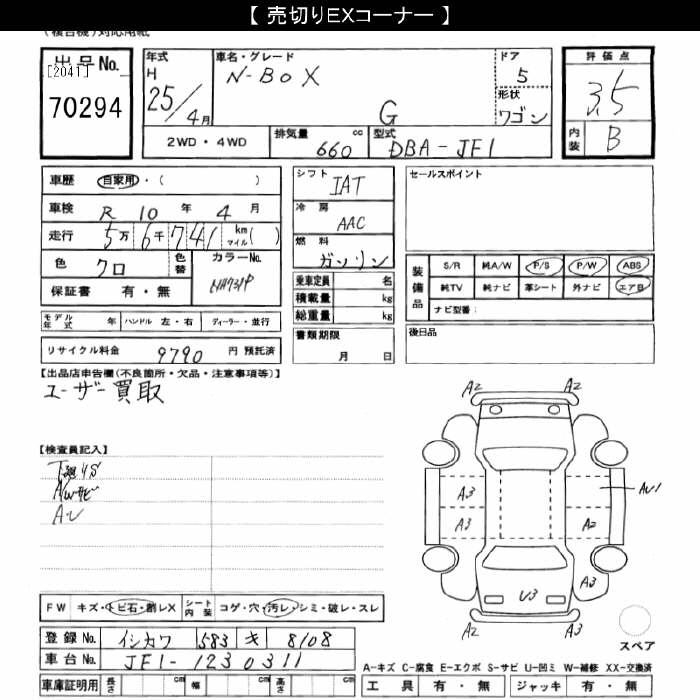 【 売切りEXコーナー 】
出品No.
[2041]
70294
年式
H
25/4月
車名・グレード
N-BOX
G
ドア
5
形状
ワゴン
評価点
3.5
内装
B
2WD・4WD
排気量
660 cc
型式
DBA-JF1
車歴 自家用・( )
車検 R 10 年 4 月
走行 5万 6千 7 4 1 km マイル( )
色 クロ
色替
カラーNo.
保証書 有・無
シフト
IAT
冷房
AAC
燃料
ガソリン
乗車定員 名
積載量 kg
総重量 kg
書類期限
月 日
セールスポイント
装備品
S/R 純A/W P/S P/W ABS
純TV 純ナビ 革シート 外ナビ エアB
ナビ型番:
後日品
モデル年式 年
ハンドル 左・右
ディーラー・並行
リサイクル料金 9790 円 預託済
【出品店申告欄(不良箇所・欠品・注意事項等)】
ユーザー買取
【検査員記入】
AWサビ
AU
FW キズ・トビ石・割レX
シート内装 コゲ・穴・汚レ・シミ・破レ・スレ
登録No. イシカワ 583 キ 8108
車台No. JF1-1230311
車庫証明用 長さ cm 幅 cm 高さ cm
A2 A2
A3 A3
AU1
A2
A3
U3
A2 A3
スペア
A-キズ C-腐食 E-エクボ S-サビ U-凹ミ W-補修 XX-交換済
工具 有・無 ジャッキ 有・無